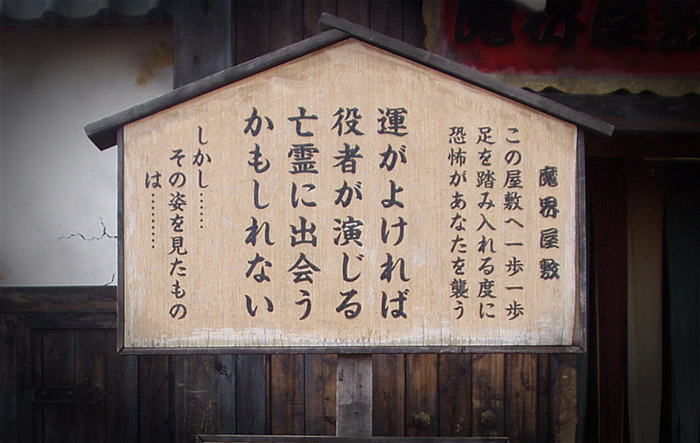 魔界屋敷
魔界屋敷
この屋敷へ一歩一歩
足を踏み入れる度に
恐怖があなたを襲う
運がよければ
役者が演じる
亡霊に出会う
かもしれない
しかし……
その姿を見たもの
は………